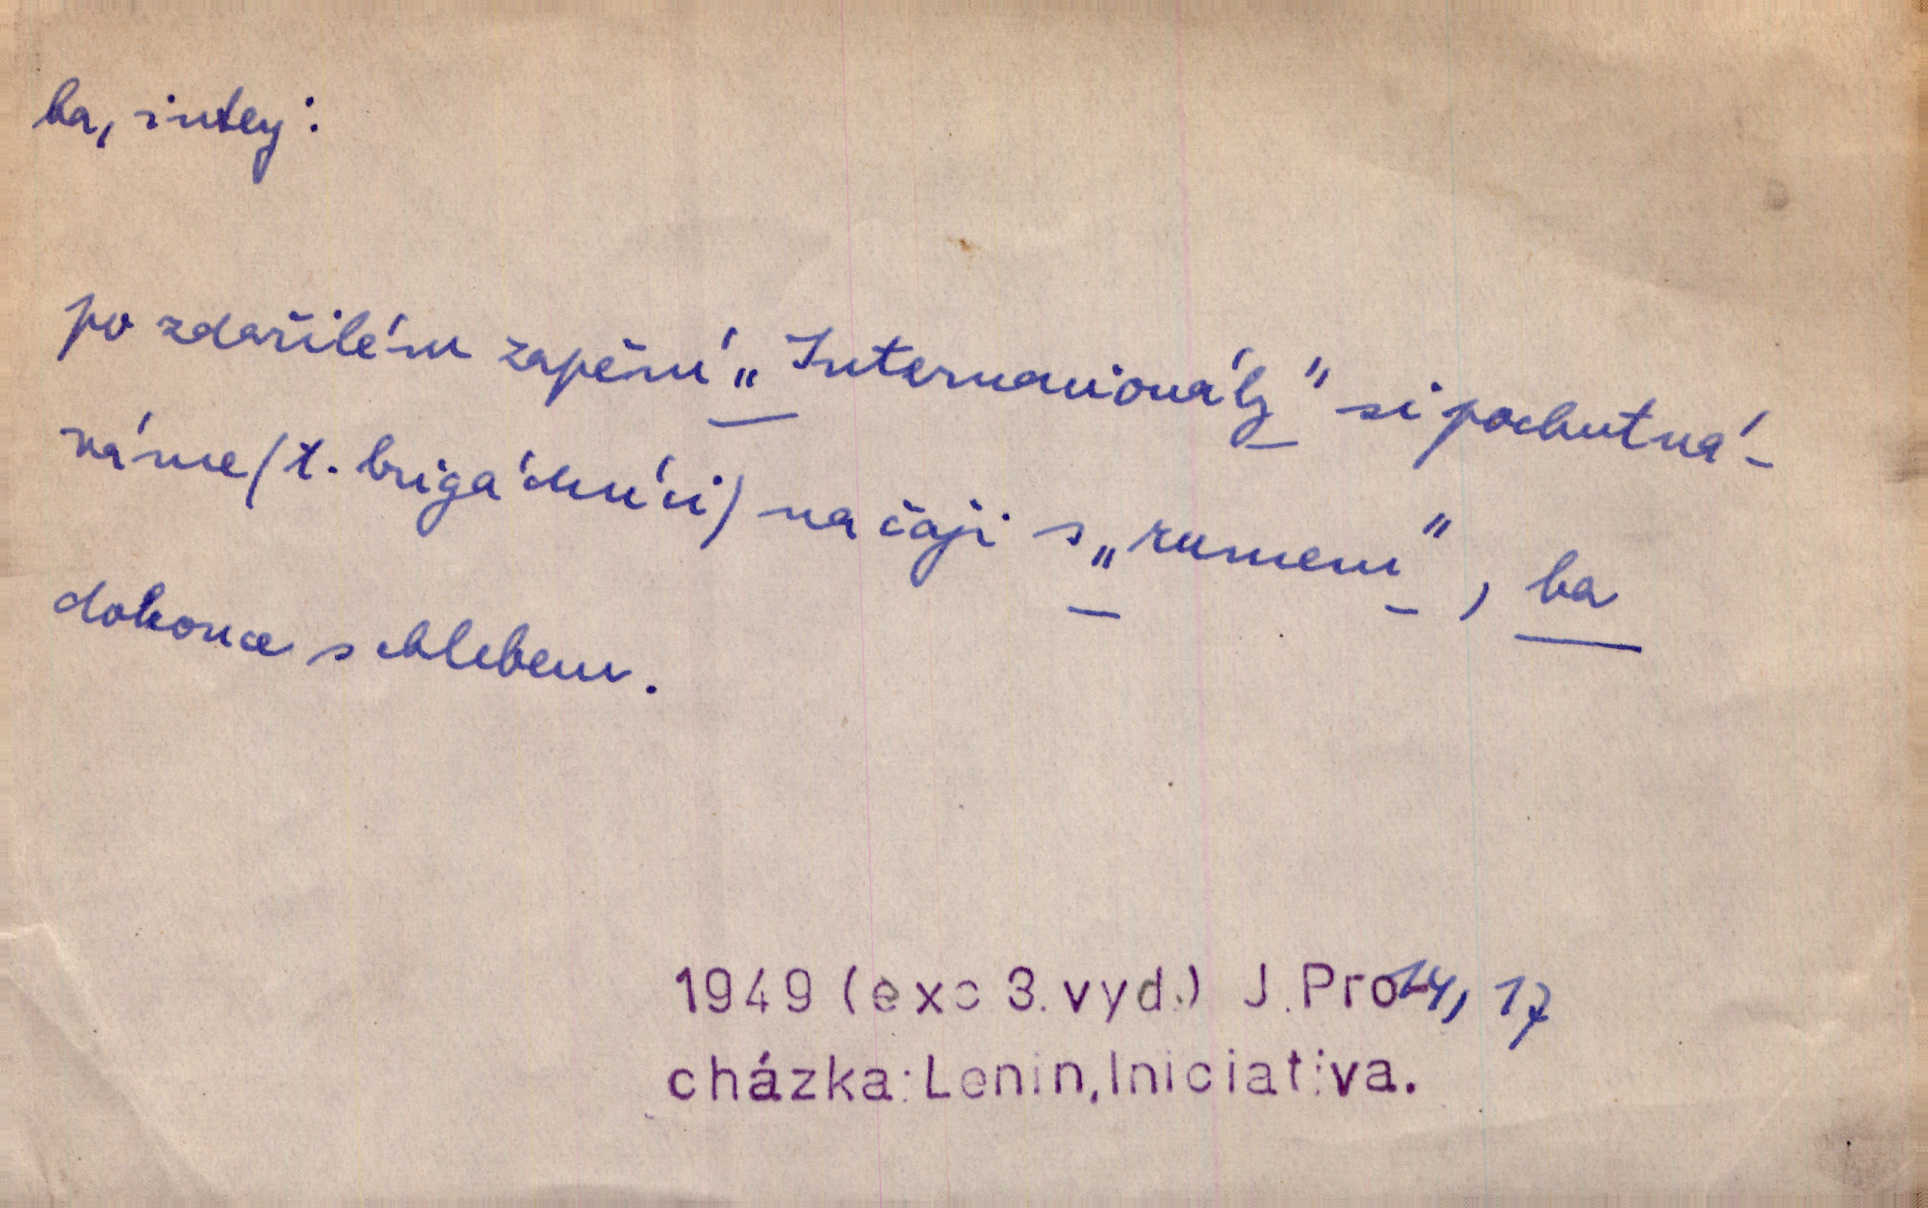 ba, interj:
po zdařilém zapění „Internacionály" si pochutná-
váme (t. brigádníci) na čaji s „rumem", ba
dokonce s chlebem.
1949 (exc 3. vyd.) J. Pro- 14, 17
cházka: Lenin, Iniciativa.